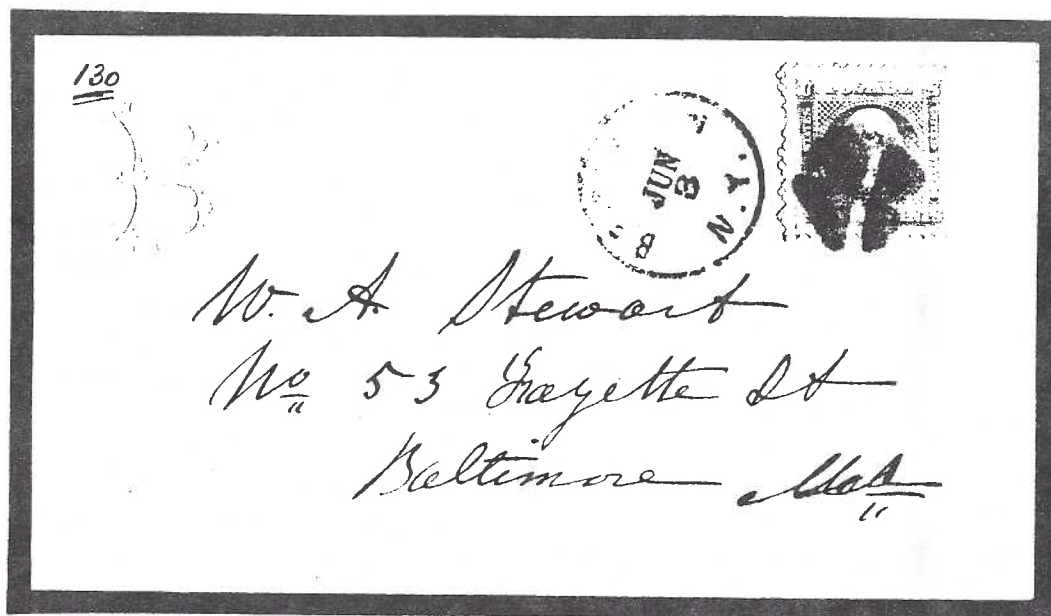 130
N.Y.
JUN
3
8
W. A. Stewart
No 53 Fayette St
Baltimore Md